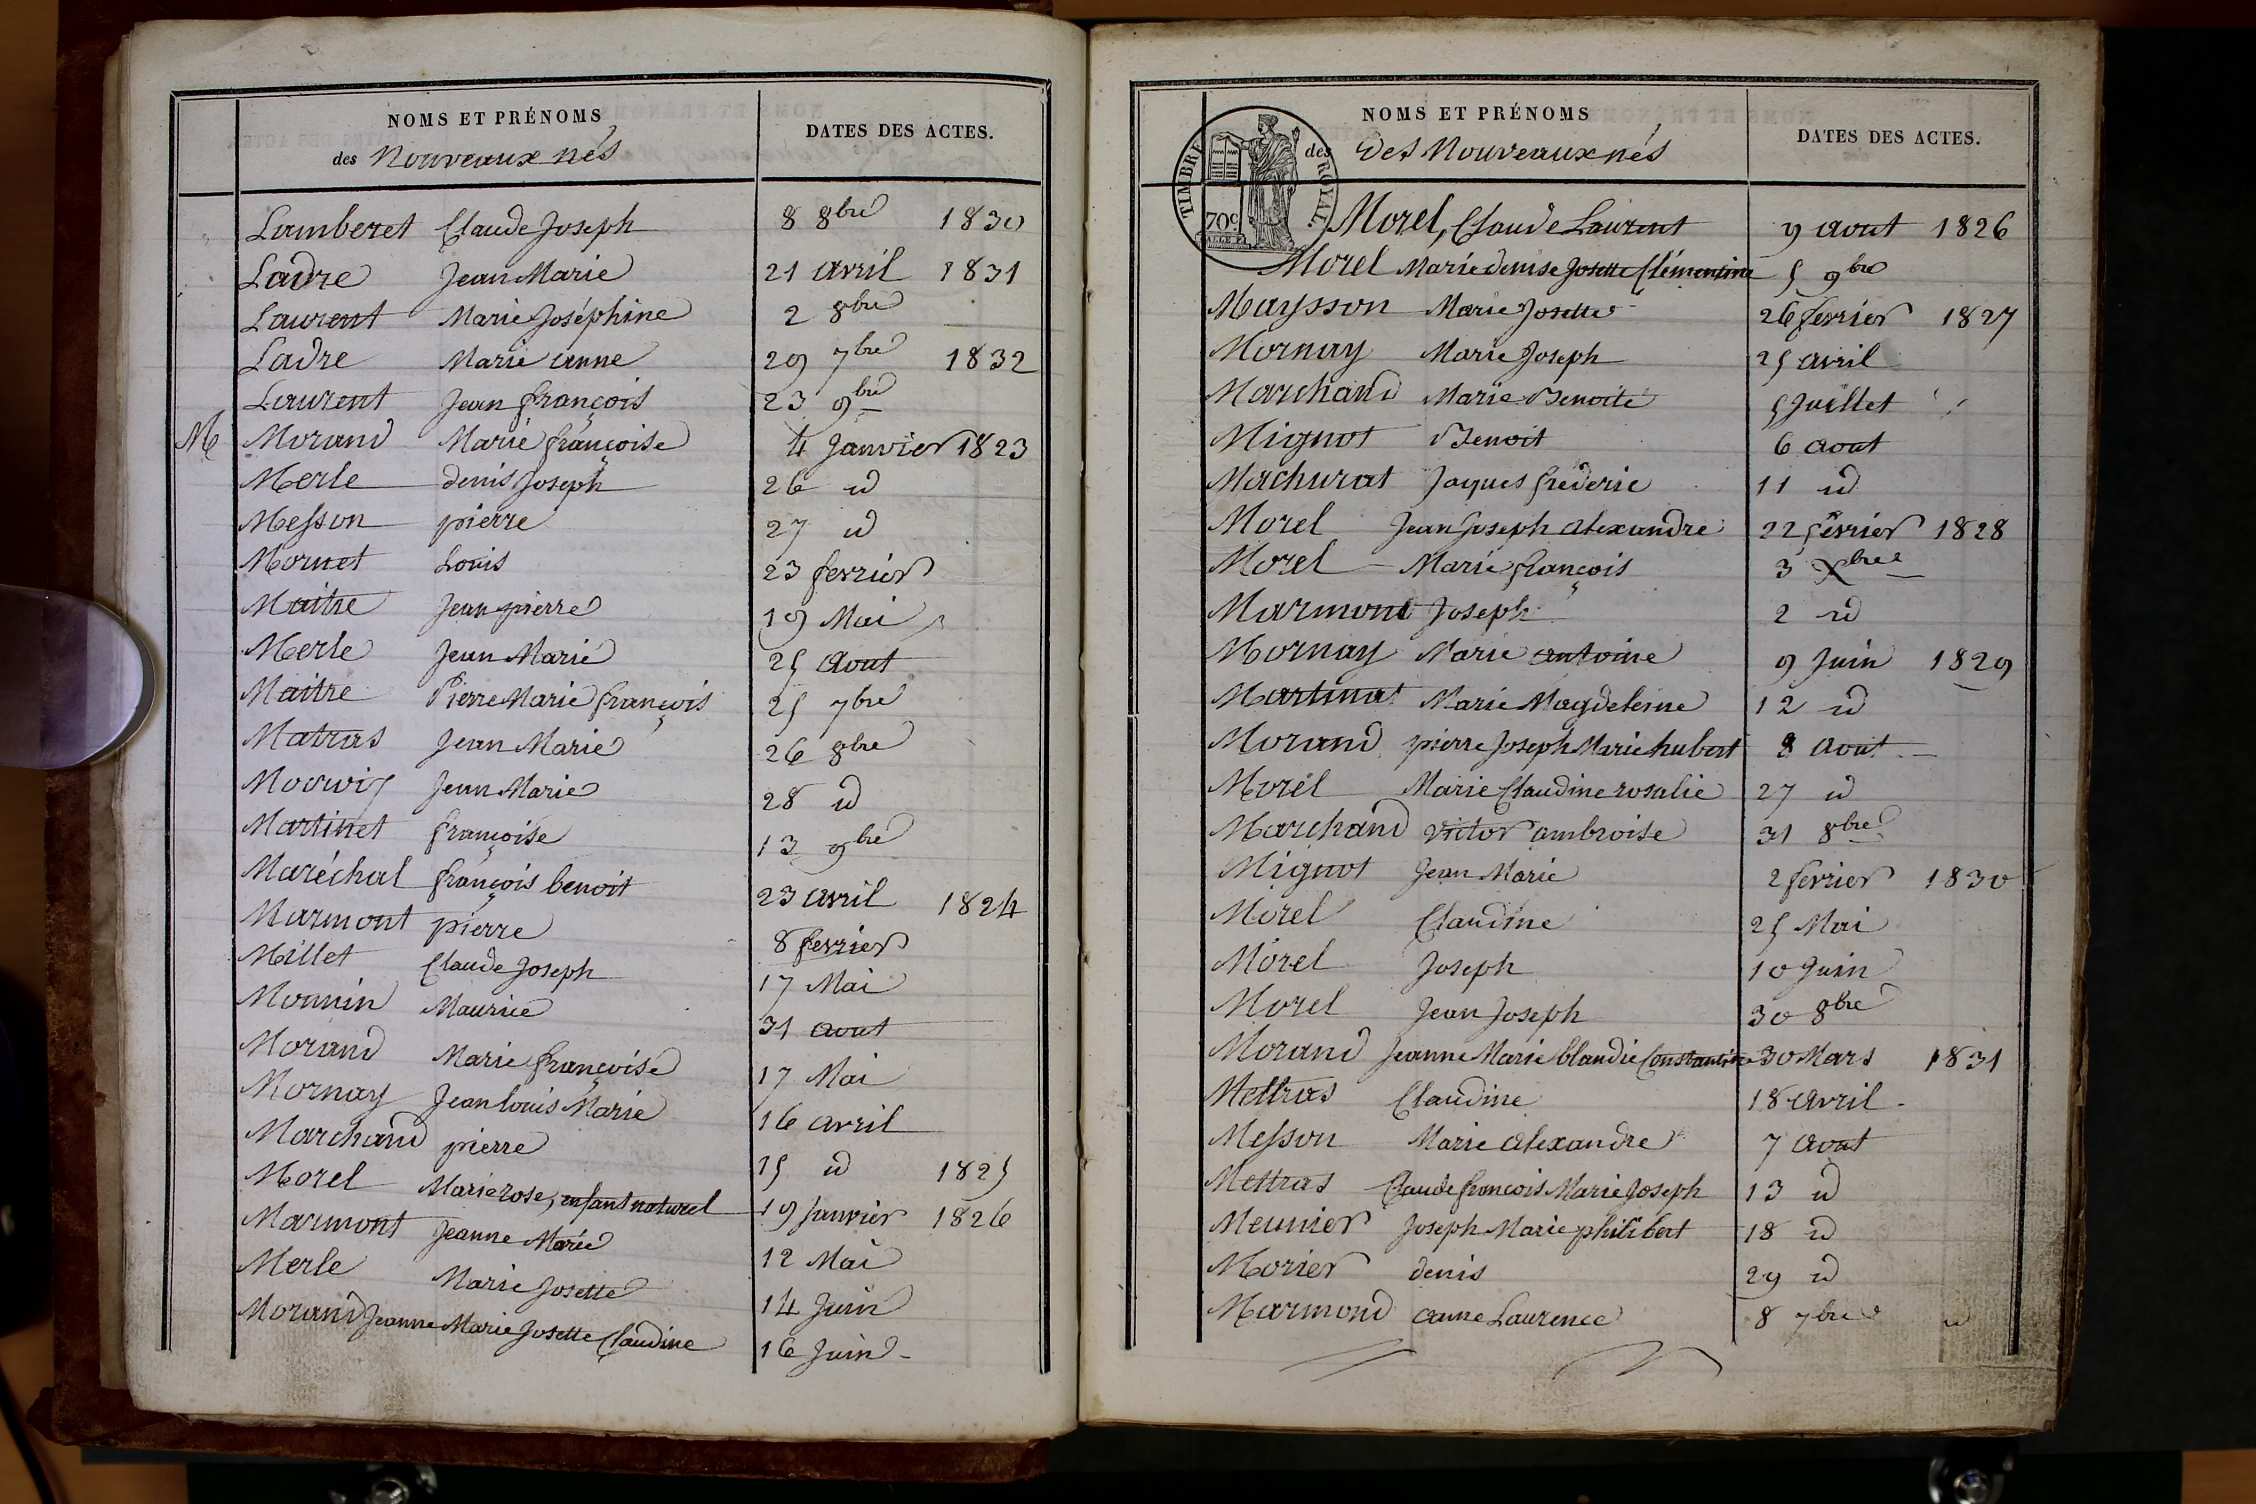 NOMS ET PRÉNOMS
des Nouveaux nés
DATES DES ACTES.
Lamberet Claude Joseph 8 8bre 1830
Ladre Jean Marie 21 avril 1831
Laurent Marie Joséphine 2 8bre
Ladre Marie anne 29 7bre 1832
Laurent Jean françois 23 9bre
M Morand Marie françoise 4 Janvier 1823
Merle denis Joseph 26 id
Messon pierre 27 id
Mornet Louis 23 fevrier
Maitre Jean pierre 19 Mai
Merle Jean Marie 25 Aout
Maitre Pierre Marie françois 25 7bre
Matras Jean Marie 26 8bre
Jean Marie 28 id
Martinet françoise 13 9bre
Maréchal françois benoit 23 avril 1824
Marmont pierre 8 fevrier
Millet Claude Joseph 17 Mai
Monnin Maurice 31 aout
Morand Marie françoise 17 Mai
Mornay Jean louis Marie 16 avril
Marchand pierre 15 id 1825
Morel Marie rose, enfant naturel 19 Janvier 1826
Marmont Jeanne Marie 12 Mai
Merle Marie Josette 14 Juin
Morand Jeanne Marie Josette Claudine 16 Juin
NOMS ET PRÉNOMS
des Des Nouveaux nés
DATES DES ACTES.
TIMBRE ROYAL.
70c
Morel, Claude Laurent 9 aout 1826
Morel Marie denise Josette Clémentine 5 9bre
Maysson Marie Josette 26 fevrier 1827
Mornay Marie Joseph 25 avril
Marchand Marie Benoite 5 Juillet
Mignot Benoit 6 aout
Machurat Jaques frederic 11 id
Morel Jean Joseph alexandre 22 février 1828
Morel Marie françois 3 Xbre
Marmont Joseph 2 id
Mornay Marie antoine 9 Juin 1829
Martinat Marie Magdeleine 12 id
Morand pierre Joseph Marie hubert 8 aout
Morel Marie Claudine rosalie 27 id
Marchand victor ambroise 31 8bre
Mignot Jean Marie 2 fevrier 1830
Morel Claudine 25 Mai
Morel Joseph 10 Juin
Morel Jean Joseph 30 8bre
Morand Jeanne Marie blandie Constantine 30 Mars 1831
Mettras Claudine 18 avril
Messon Marie alexandre 7 aout
Mettras Claude françois Marie Joseph 13 id
Meunier Joseph Marie philibert 18 id
Morier denis 29 id
Marmond anne Laurence 8 7bre id